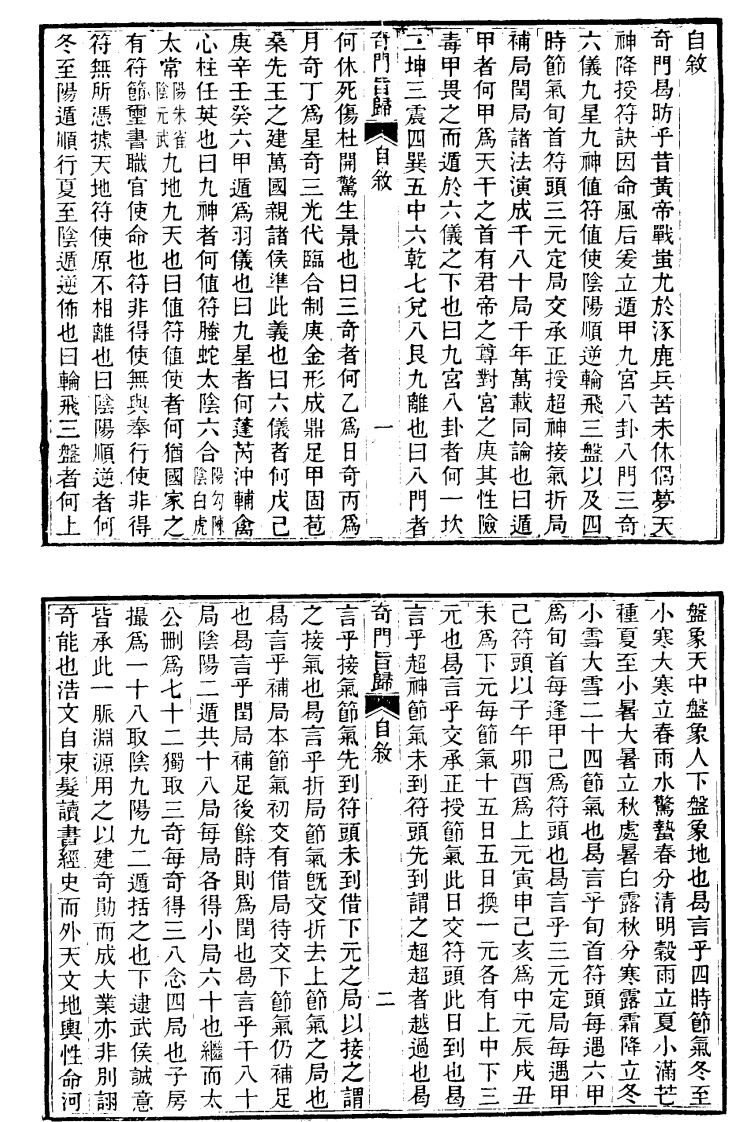 自敘
奇門曷昉乎昔黃帝戰蚩尤於涿鹿兵苦未休偶夢天
神降授符訣因命風后爰立遁甲九宮八卦八門三奇
六儀九星九神值符值使陰陽順逆輪飛三盤以及四
時節氣旬首符頭三元定局交承正授超神接氣折局
補局閏局諸法演成千八十局千年萬載同論也曰遁
甲者何甲爲天干之首有君帝之尊對宮之庚其性險
毒甲畏之而遁於六儀之下也曰九宮八卦者何一坎
二坤三震四巽五中六乾七兌八艮九離也曰八門者
奇門旨歸 自敘 一
何休死傷杜開驚生景也曰三奇者何乙爲日奇丙爲
月奇丁爲星奇三光代臨合制庚金形成鼎足甲固苞
桑先王之建萬國親諸侯準此義也曰六儀者何戊己
庚辛壬癸六甲遁爲羽儀也曰九星者何蓬芮沖輔禽
心柱任英也曰九神者何值符螣蛇太陰六合陽勾陳陰白虎
太常陽朱雀陰元武九地九天也曰值符值使者何猶國家之
有符節璽書職官使命也符非得使無與奉行使非得
符無所憑據天地符使原不相離也曰陰陽順逆者何
冬至陽遁順行夏至陰遁逆佈也曰輪飛三盤者何上
盤象天中盤象人下盤象地也曷言乎四時節氣冬至
小寒大寒立春雨水驚蟄春分清明穀雨立夏小滿芒
種夏至小暑大暑立秋處暑白露秋分寒露霜降立冬
小雪大雪二十四節氣也曷言乎旬首符頭每遇六甲
爲旬首每逢甲己爲符頭也曷言乎三元定局每遇甲
己符頭以子午卯酉爲上元寅申己亥爲中元辰戌丑
未爲下元每節氣十五日五日換一元各有上中下三
元也曷言乎交承正授節氣此日交符頭此日到也曷
言乎超神節氣未到符頭先到謂之超超者越過也曷
奇門旨歸 自敘 二
言乎接氣節氣先到符頭未到借下元之局以接之謂
之接氣也曷言乎折局節氣旣交折去上節氣之局也
曷言乎補局本節氣初交有借局待交下節氣仍補足
也曷言乎閏局補足後餘時則爲閏也曷言乎千八十
局陰陽二遁共十八局每局各得小局六十也繼而太
公刪爲七十二獨取三奇每奇得三八念四局也子房
撮爲一十八取陰九陽九二遁括之也下逮武侯誠意
皆承此一脈淵源用之以建奇勛而成大業亦非別詡
奇能也浩文自束髮讀書經史而外天文地輿性命河